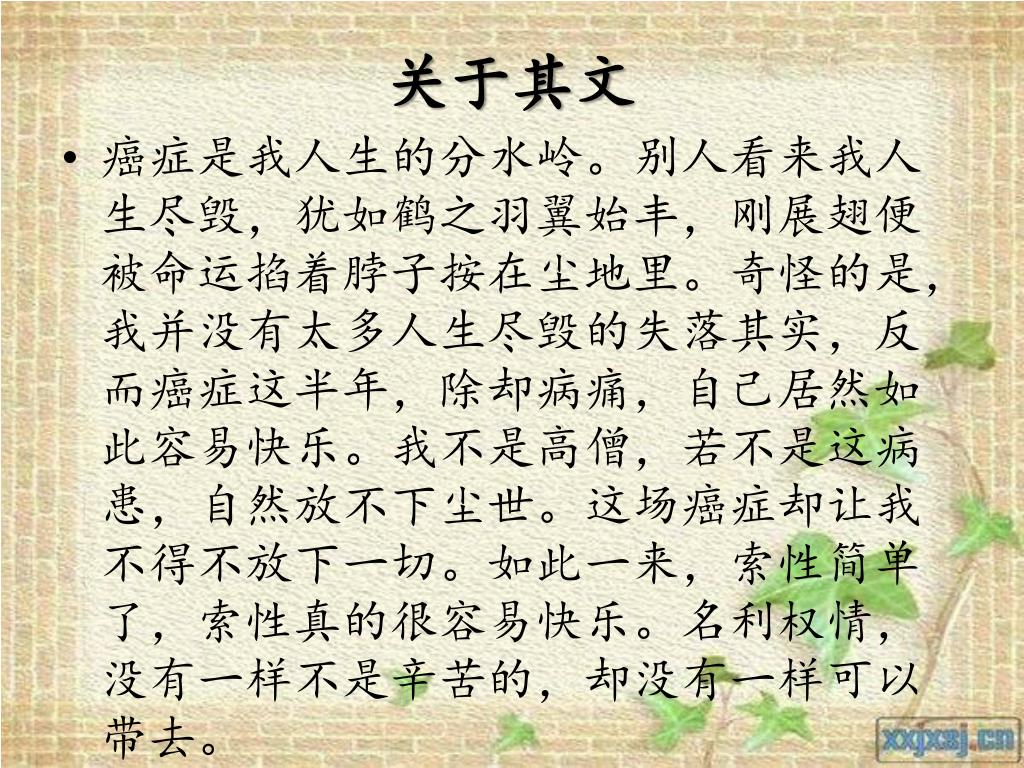 关于其文
• 癌症是我人生的分水岭。别人看来我人
生尽毁，犹如鹤之羽翼始丰，刚展翅便
被命运掐着脖子按在尘地里。奇怪的是，
我并没有太多人生尽毁的失落其实，反
而癌症这半年，除却病痛，自己居然如
此容易快乐。我不是高僧，若不是这病
患，自然放不下尘世。这场癌症却让我
不得不放下一切。如此一来，索性简单
了，索性真的很容易快乐。名利权情，
没有一样不是辛苦的，却没有一样可以
带去。
xxjxsj.cn